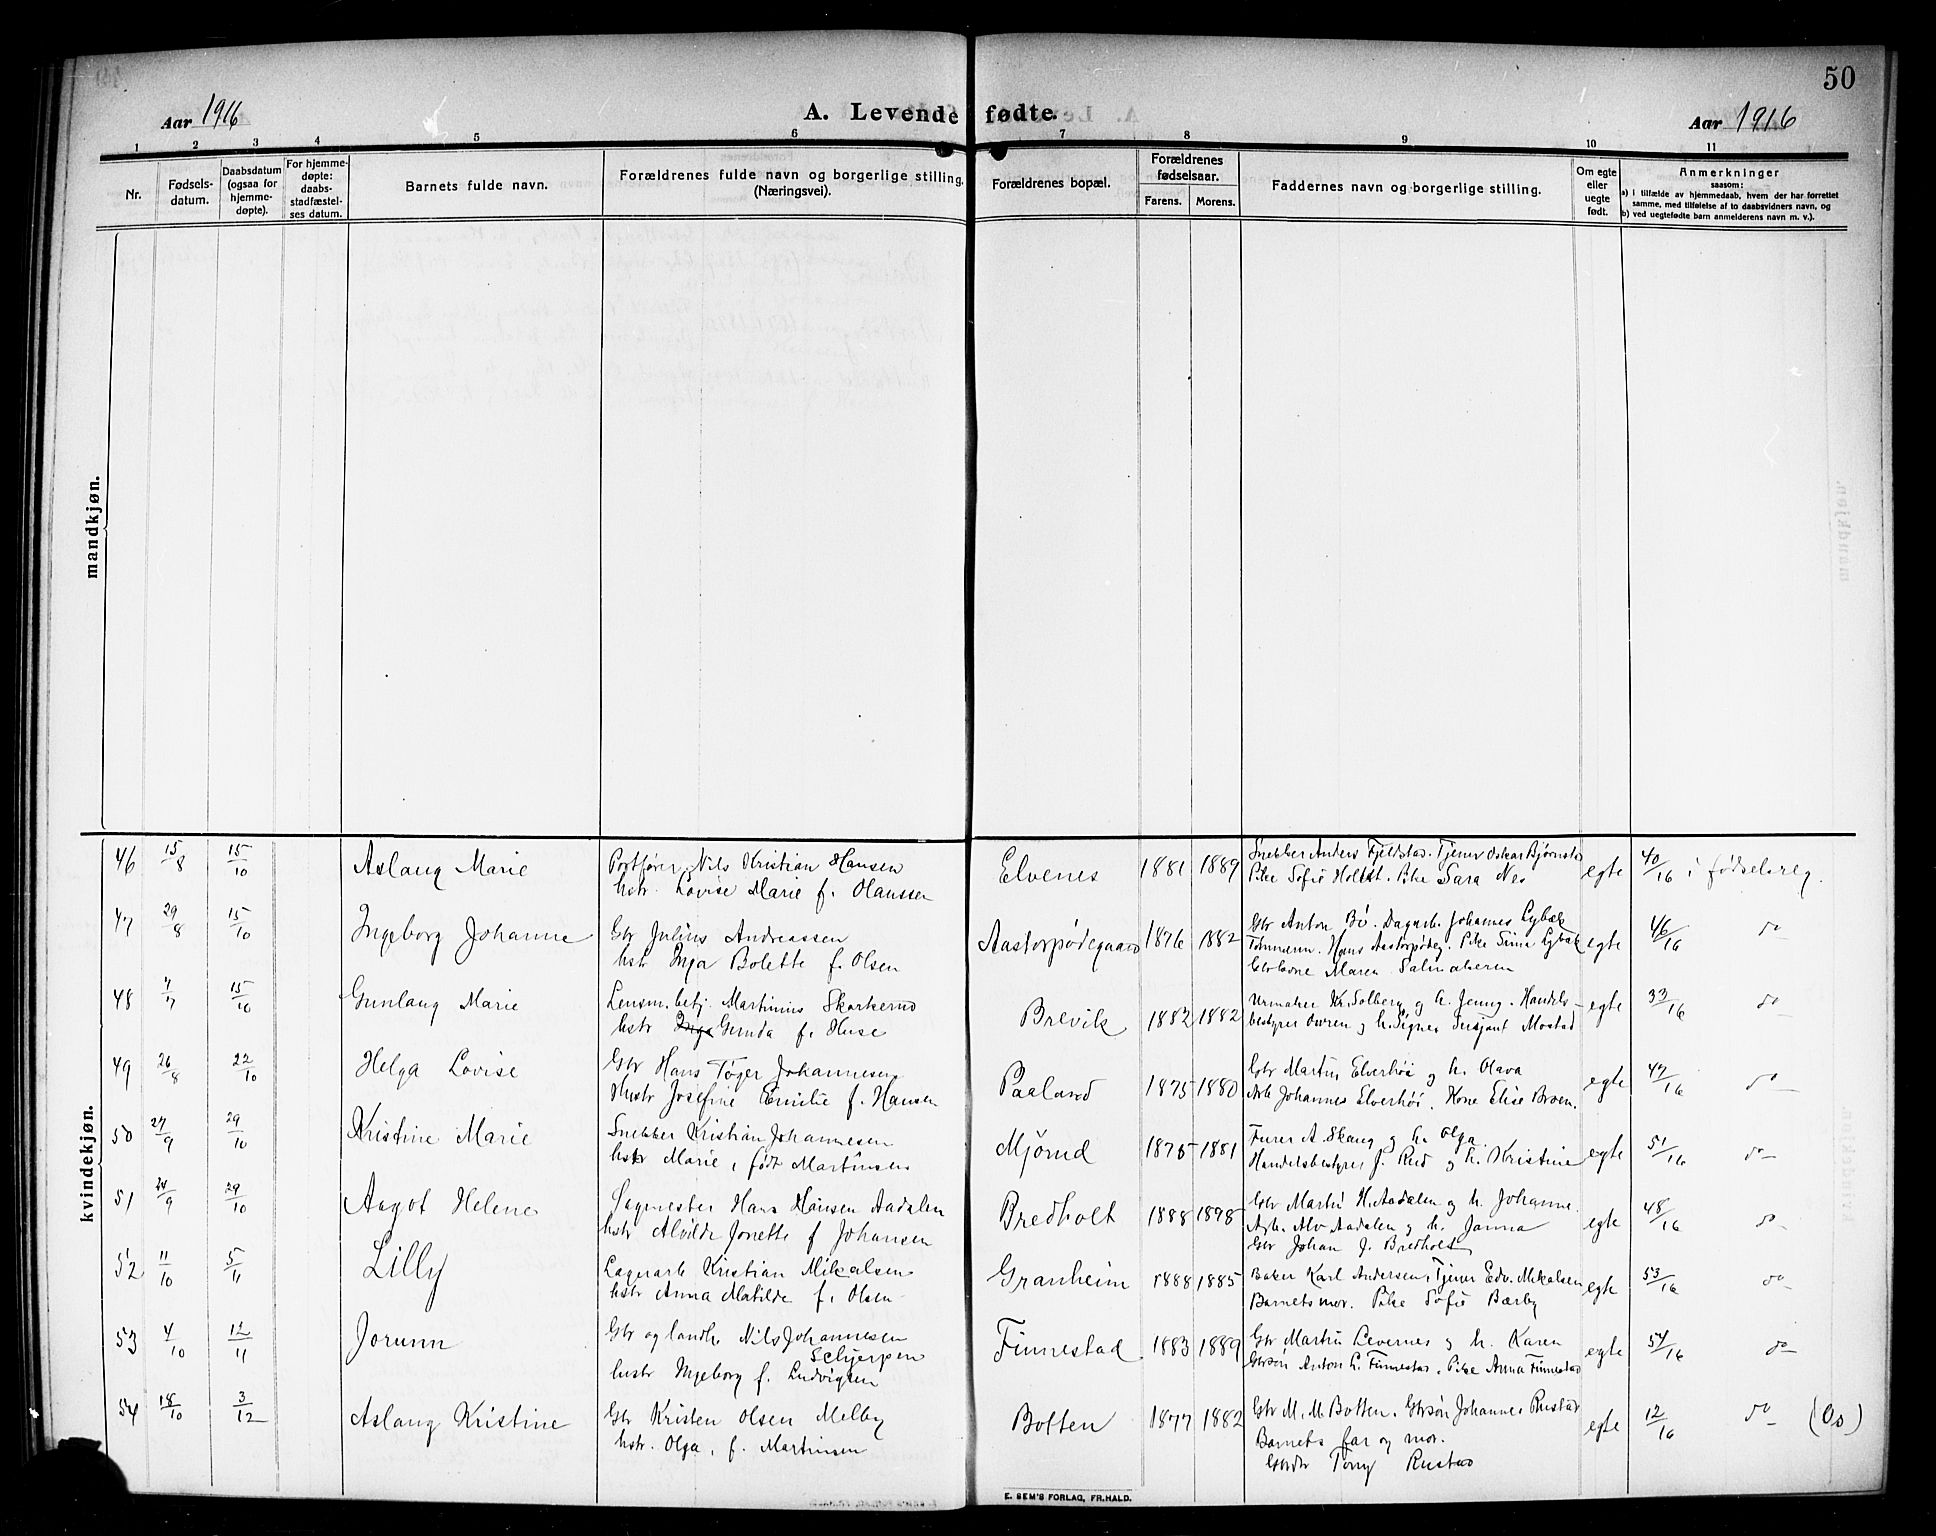 50
Aar 1916
A. Levende fødte.
Aar 1916
1 2 3 4 5 6 7 8 9 10 11
Nr.
Fødsels-
datum.
Daabsdatum
(ogsaa for
hjemme-
døpte).
For hjemme-
døpte:
daabs-
stadfæstel-
ses datum.
Barnets fulde navn.
Forældrenes fulde navn og borgerlige stilling.
(Næringsvei).
Forældrenes bopæl.
Forældrenes
fødselsaar.
Farens. Morens.
Faddernes navn og borgerlige stilling.
Om egte
eller
uegte
født.
Anmerkninger
saasom:
a) i tilfælde av hjemmedaab, hvem der har forrettet
samme, med tilføielse af to daabsvidners navn, og
b) ved uegtefødte barn anmelderens navn m. v.).
mandkjøn.
kvindekjøn.
46 15/8 15/10 Aslaug Marie
Portfører Nils Kristian Hansen
hstr. Lovise Marie f. Olaussen
Elvenes 1881 1889
Snekker Anders Fjeldstad. Tjener Oskar Bjørnstad
Pike Sofie Holst. Pike Sara Nes
egte 40/16 i fødselsreg.
47 29/8 15/10 Ingeborg Johanne
Gbr Julius Andreassen
hstr Inga Bolette f. Olsen
Aastorpødegaard 1876 1882
Gbr Anton Bø. Dagarb. Johannes Lybæk
Tømmerm. Hans Aastorpødeg. Pike Lybæk
Maren
egte 46/16 do
48 7/7 15/10 Gunlaug Marie
Lensm. betj. Martinius Skarkerud
hstr Gunda f. Huse
Brevik 1882 1882
Urmaker Kr. Solberg og h. Jenny. Handels-
bestyrer Owren og h. Signe. Sersjant Mostad
egte 33/16 do
49 26/8 22/10 Helga Lovise
Gbr Hans Tøger Johannesen
Hustr Josefine Emilie f. Hansen
Paaland 1875 1880
Gbr Martin Elverhøi og h. Olava
Arb Johannes Elverhøi. Kone Elise Broen.
egte 47/16 do
50 27/9 29/10 Kristine Marie
Snekker Kristian Johannesen
hstr Marie, født Martinsen
Mjørud 1875 1881
Furer A. Skaug og h. Olga.
Handelsbestyrer J. Rud og h. Kristine
egte 51/16 do
51 24/9 29/10 Aagot Helene
Sagmester Hans Hansen Aadalen
hstr Alvilde Jonette f Johansen
Bredholt 1888 1878
Gbr Martin H. Aadalen og h. Johanne.
Agb. Alv Aadalen og h. Janna
Gbr Johan J. Bredholt
egte 48/16 do
52 11/10 5/11 Lilly
Lagerarb Kristian Mikalsen
hstr Anna Matilde f. Olsen
Granheim 1888 1885
Baker Karl Andersen, Tjener Edv. Mikalsen
Barnets mor. Pike Sofie Bærby
egte 53/16 do
53 4/10 12/11 Jorunn
Gbr og landh. Nils Johannesen
Schjerpen
hustr Ingeborg f. Ludvigsen
Finnestad 1883 1889
Gbr Martin Levernes og h. Karen
Gbrsøn Anton L. Finnestad. Pike Anna Finnestad
egte 54/16 do
54 18/10 3/12 Aslaug Kristine
Gbr Kristen Olsen Melby
hstr. Olga, f. Martinsen
Botten 1877 1882
Gbr M. M. Botten. Gbrsøn Johannes Rustad
Barnets far og mor.
Gbrdtr Torny Rustad
egte 12/16 do (Os)
E. SEM'S FORLAG, FR.HALD.